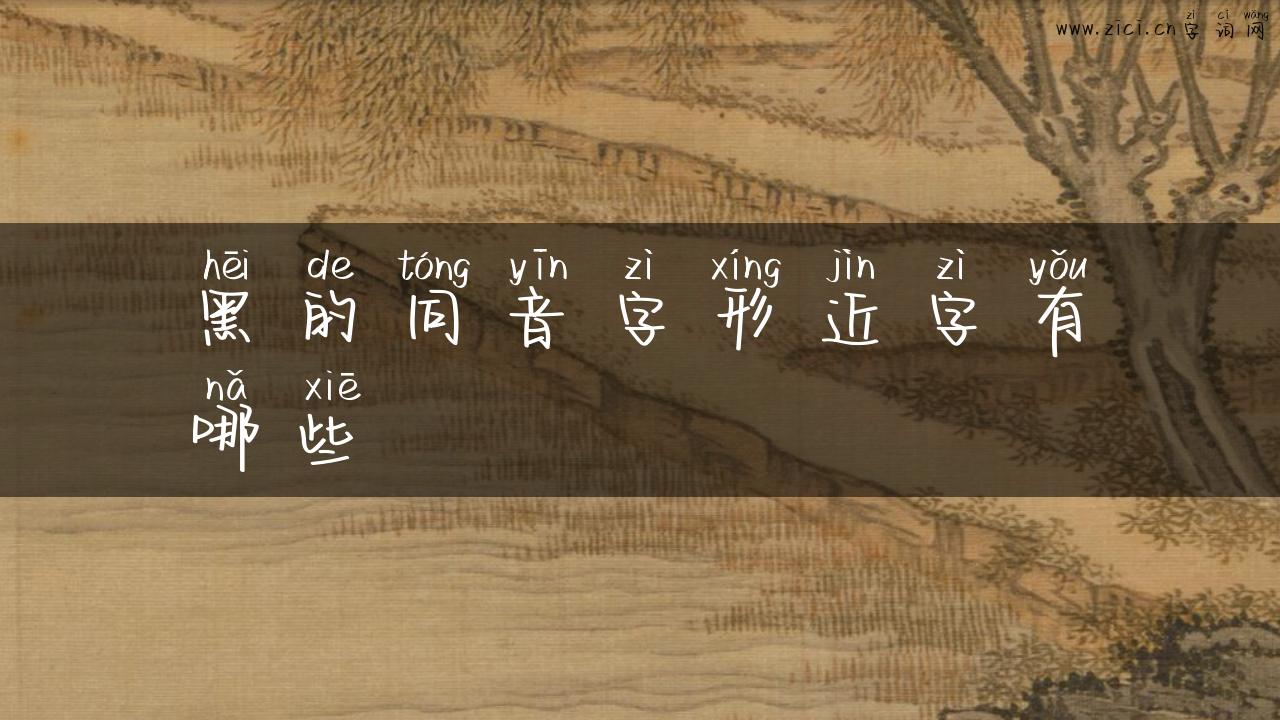 zì cí wǎng
www.zici.cn字词网
hēi de tóng yīn zì xíng jìn zì yǒu
黑的同音字形近字有
nǎ xiē
哪些